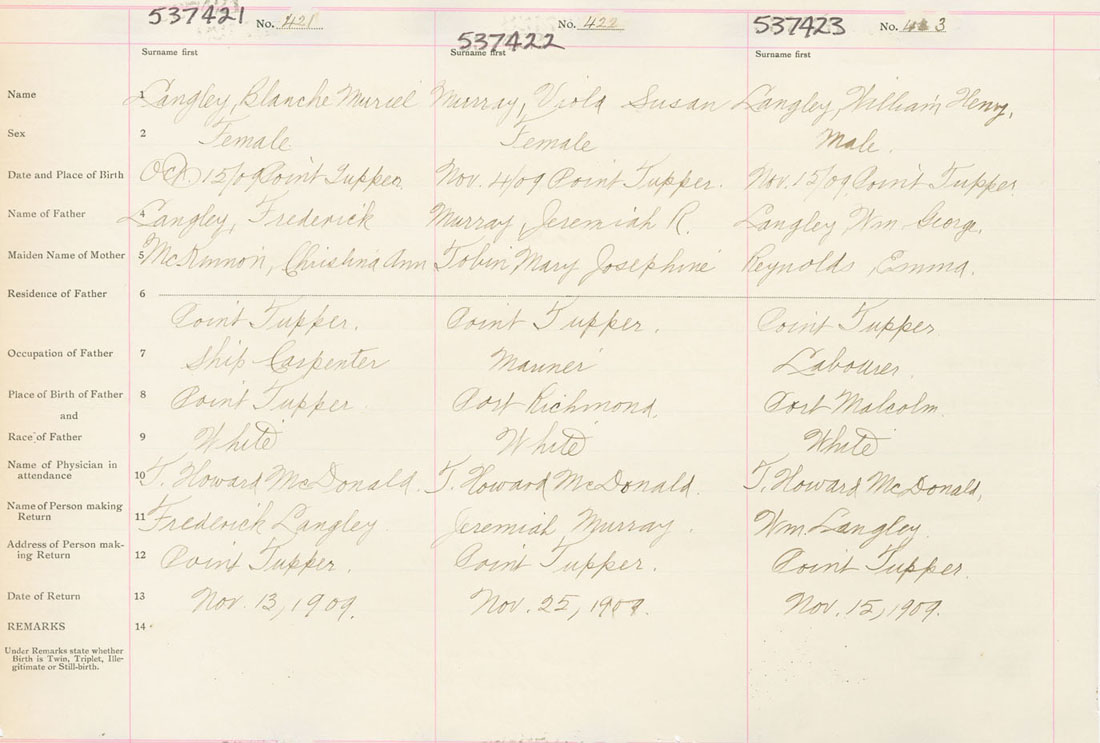 537421 No. 421 537422 No. 422 537423 No. 423
Surname first Surname first Surname first
Name 1 Langley, Blanche Muriel Murray, Viola Susan Langley, William Henry,
Sex 2 Female Female Male.
Date and Place of Birth Oct 15/09 Point Tupper. Nov. 4/09 Point Tupper. Nov. 15/09 Point Tupper
Name of Father 4 Langley, Frederick Murray, Jeremiah R. Langley, Wm. George.
Maiden Name of Mother 5 McKinnon, Christina Ann Tobin Mary Josephine Reynolds, Emma.
Residence of Father 6
Point Tupper. Point Tupper. Point Tupper
Occupation of Father 7 Ship Carpenter Mariner Labourer.
Place of Birth of Father 8 Point Tupper. Port Richmond. Port Malcolm.
and
Race of Father 9 White White White
Name of Physician in
attendance 10 T. Howard McDonald. T. Howard McDonald. T. Howard McDonald,
Name of Person making
Return 11 Frederick Langley. Jeremiah Murray. Wm. Langley.
Address of Person mak-
ing Return 12 Point Tupper. Point Tupper. Point Tupper.
Date of Return 13 Nov. 13, 1909. Nov. 25, 1909. Nov. 15, 1909.
REMARKS 14
Under Remarks state whether
Birth is Twin, Triplet, Ille-
gitimate or Still-birth.